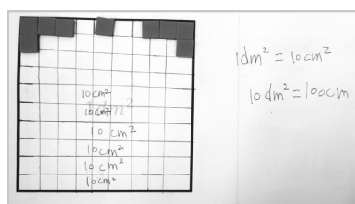 10 cm²
1dm²
10 cm²
10 cm²
10 cm²
10 cm²
10 cm²
1dm² = 10cm²
10dm² = 100cm